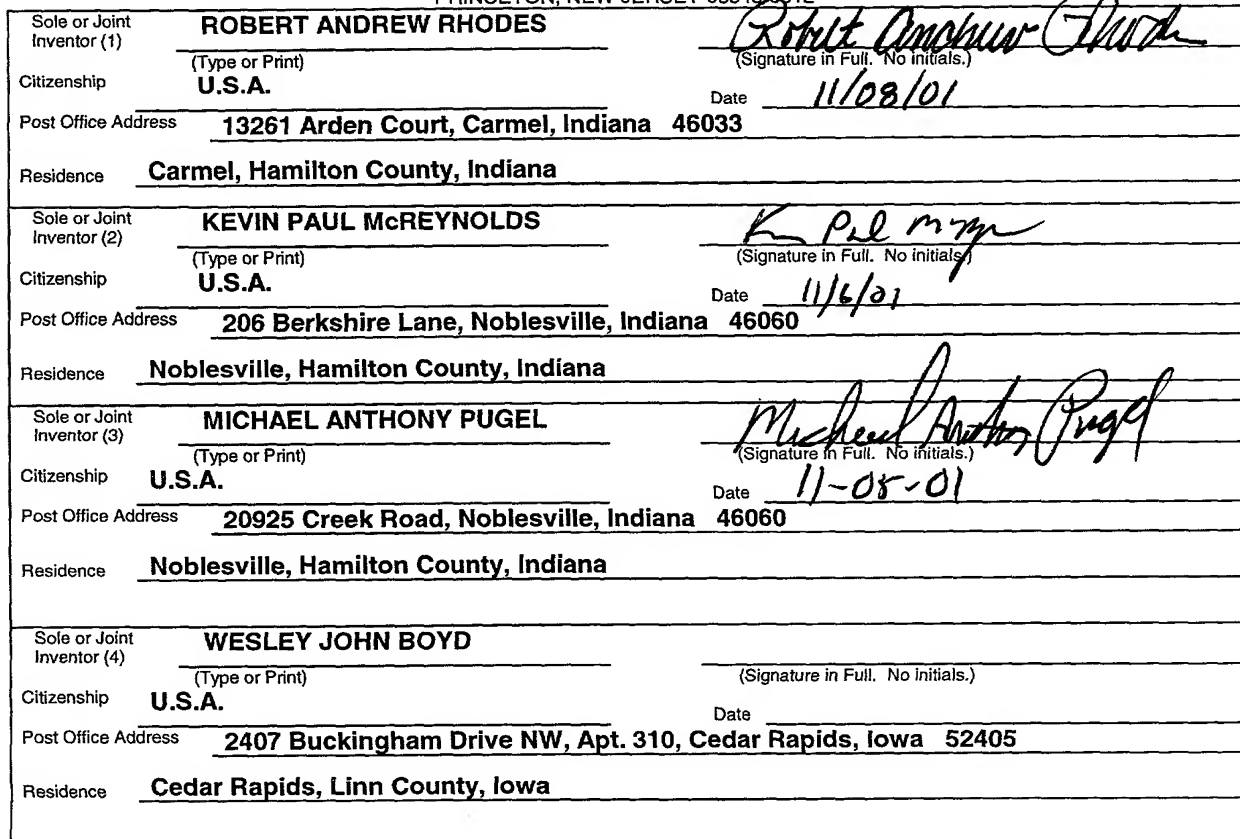 PRINCETON, NEW JERSEY
Sole or Joint Inventor (1) ROBERT ANDREW RHODES Robert Andrew Rhodes
(Type or Print) (Signature in Full. No initials.)
Citizenship U.S.A. Date 11/08/01
Post Office Address 13261 Arden Court, Carmel, Indiana 46033
Residence Carmel, Hamilton County, Indiana
Sole or Joint Inventor (2) KEVIN PAUL McREYNOLDS
(Type or Print) (Signature in Full. No initials.)
Citizenship U.S.A. Date 11/6/01
Post Office Address 206 Berkshire Lane, Noblesville, Indiana 46060
Residence Noblesville, Hamilton County, Indiana
Sole or Joint Inventor (3) MICHAEL ANTHONY PUGEL Michael Anthony Pugel
(Type or Print) (Signature in Full. No initials.)
Citizenship U.S.A. Date 11-05-01
Post Office Address 20925 Creek Road, Noblesville, Indiana 46060
Residence Noblesville, Hamilton County, Indiana
Sole or Joint Inventor (4) WESLEY JOHN BOYD
(Type or Print) (Signature in Full. No initials.)
Citizenship U.S.A. Date
Post Office Address 2407 Buckingham Drive NW, Apt. 310, Cedar Rapids, Iowa 52405
Residence Cedar Rapids, Linn County, Iowa